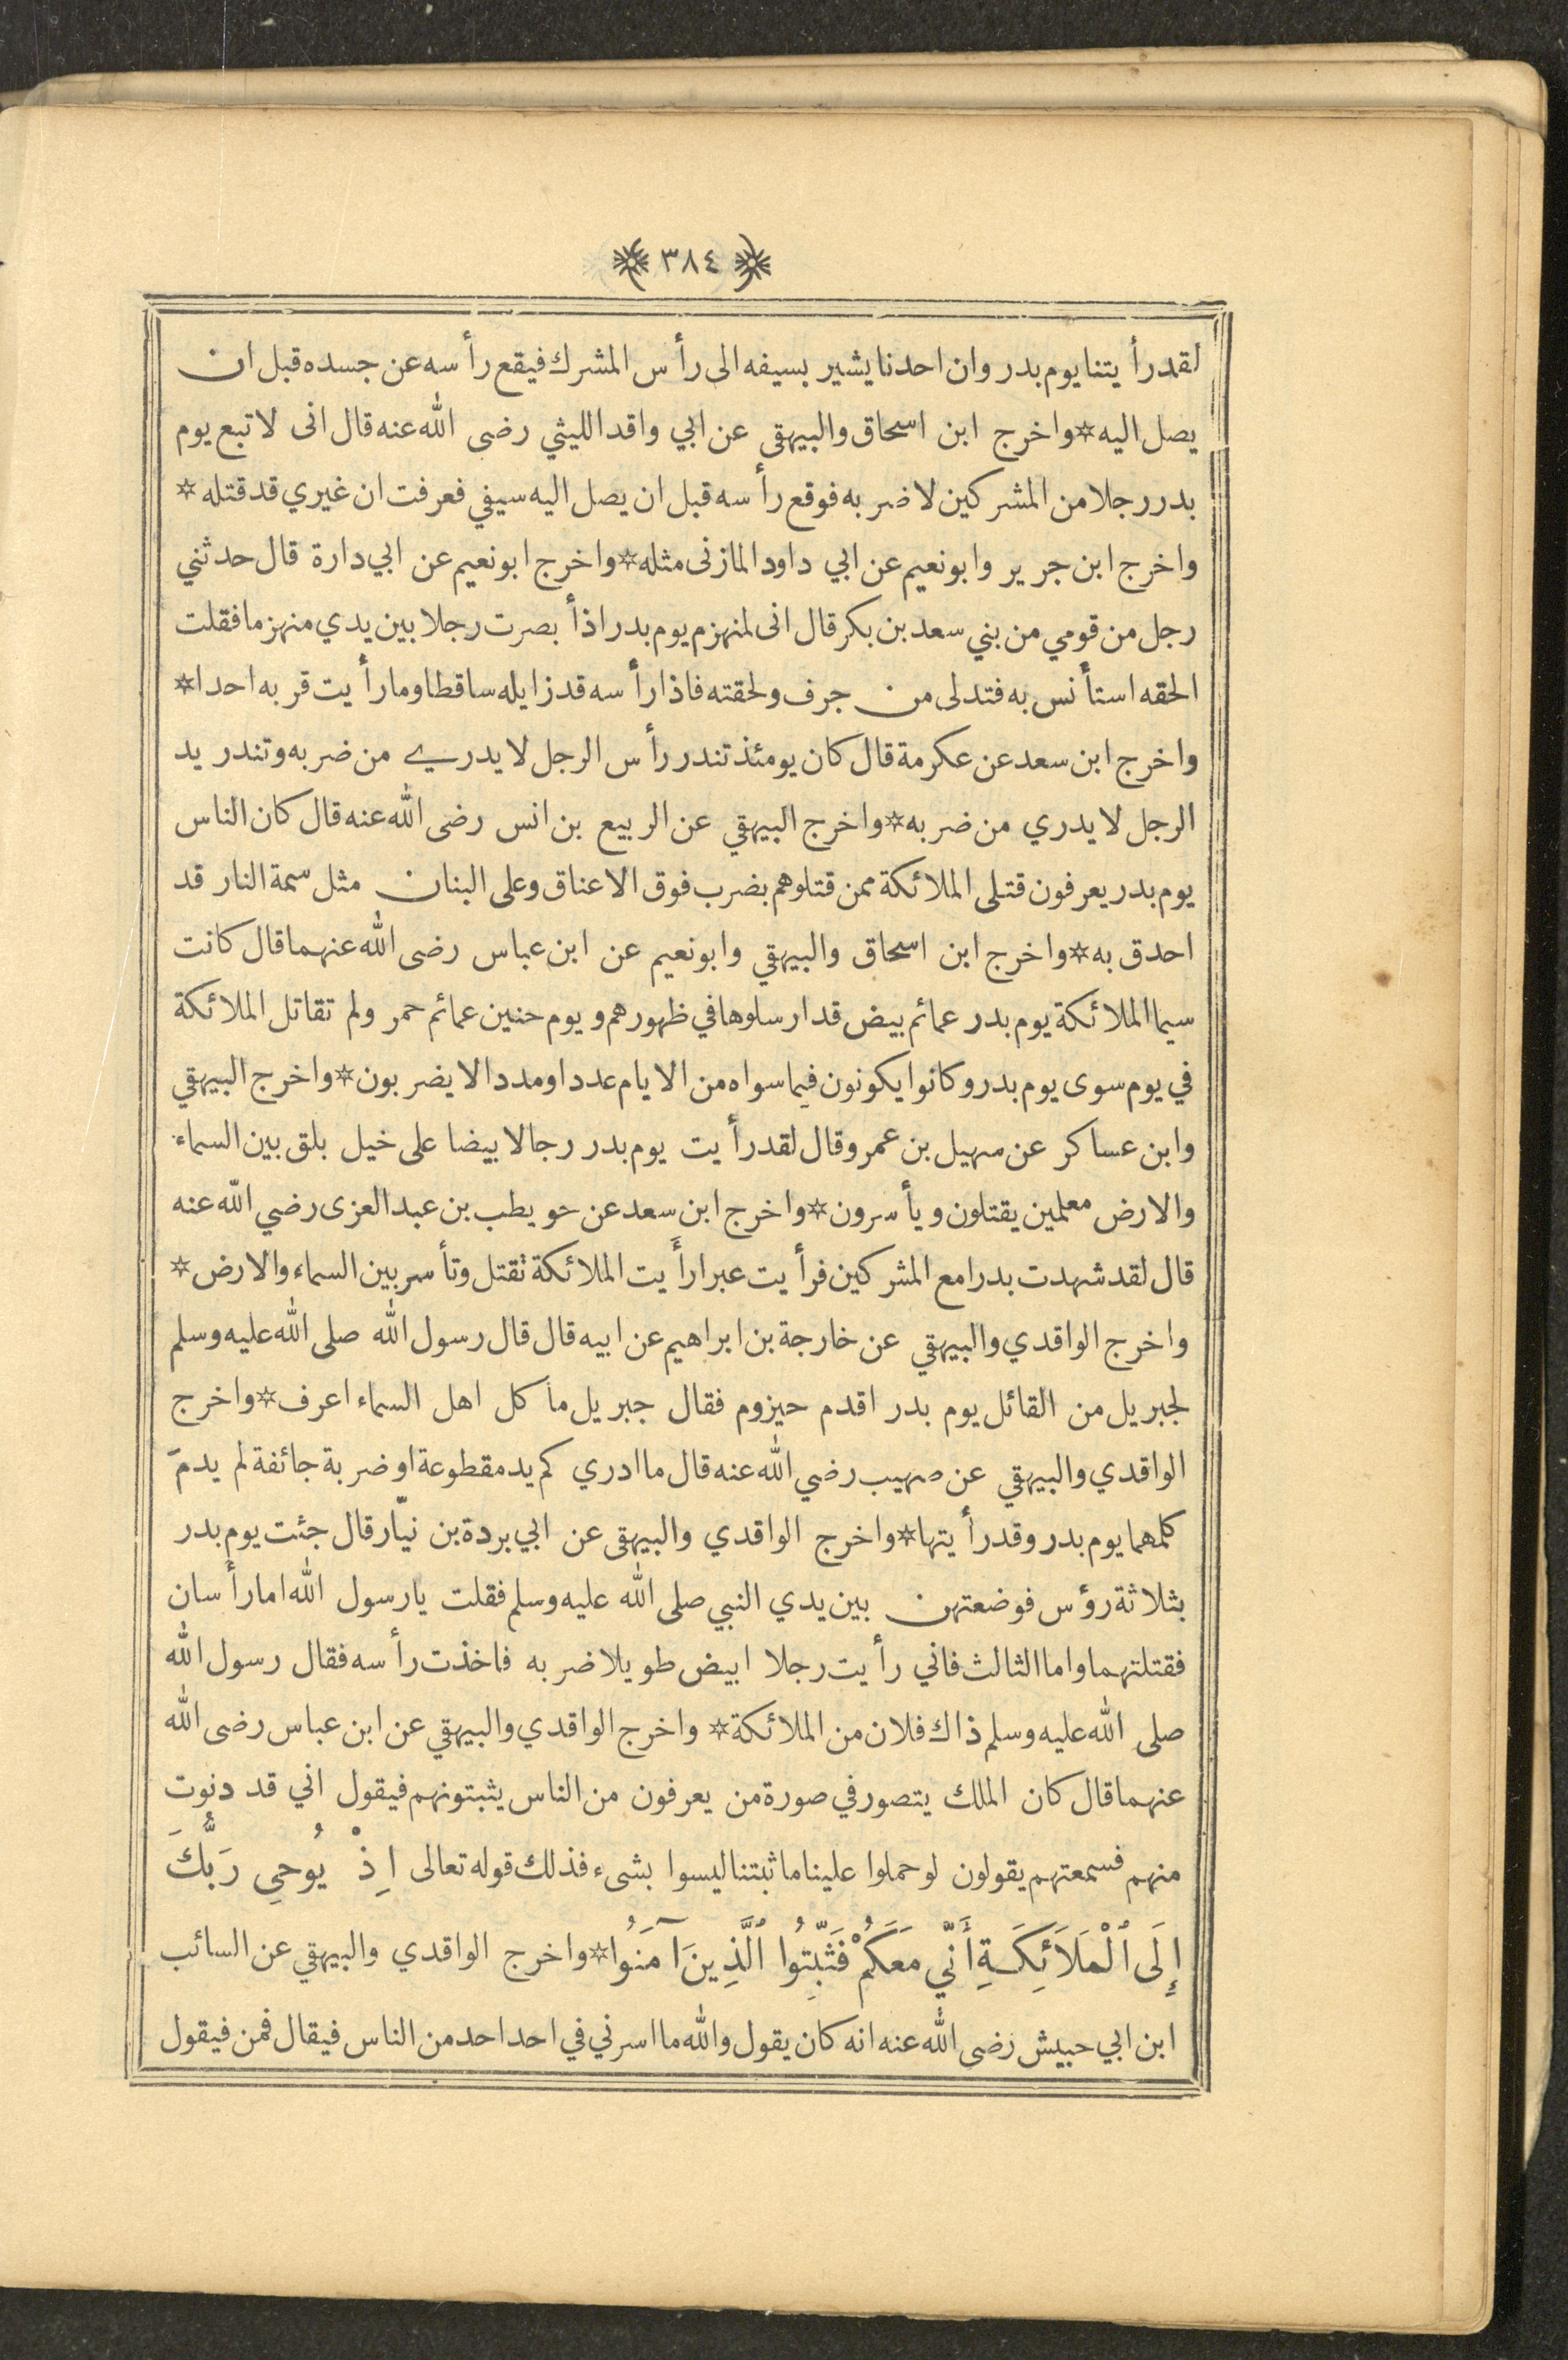 ﴿ ٣٨٤ ﴾
لقد رأيتنا يوم بدر وان احدنا يشير بسيفه الى رأس المشرك فيقع رأسه عن جسده قبل ان
يصل اليه * واخرج ابن اسحاق والبيهقى عن ابي واقد الليثي رضى الله عنه قال انى لاتبع يوم
بدر رجلا من المشركين لاضربه فوقع رأسه قبل ان يصل اليه سيفي فعرفت ان غيري قد قتله *
واخرج ابن جرير وابو نعيم عن ابي داود المازنى مثله * واخرج ابو نعيم عن ابي دارة قال حدثني
رجل من قومي من بني سعد بن بكر قال انى لمنهزم يوم بدر اذ أبصرت رجلا بين يدي منهزما فقلت
الحقه استأنس به فتدلى من جرف ولحقته فاذا رأسه قد زايله ساقطا وما رأيت قربه احدا *
واخرج ابن سعد عن عكرمة قال كان يومئذ تندر رأس الرجل لا يدرى من ضربه وتندر يد
الرجل لا يدري من ضربه * واخرج البيهقي عن الربيع بن انس رضى الله عنه قال كان الناس
يوم بدر يعرفون قتلى الملائكة ممن قتلوهم بضرب فوق الاعناق وعلى البنان مثل سمة النار قد
احدق به * واخرج ابن اسحاق والبيهقي وابو نعيم عن ابن عباس رضى الله عنهما قال كانت
سيما الملائكة يوم بدر عمائم بيض قد ارسلوها في ظهورهم ويوم حنين عمائم حمر ولم تقاتل الملائكة
في يوم سوى يوم بدر وكانوا يكونون فيما سواه من الايام عددا ومددا لا يضربون * واخرج البيهقي
وابن عساكر عن سهيل بن عمرو قال لقد رأيت يوم بدر رجالا بيضا على خيل بلق بين السماء
والارض معلمين يقتلون ويأسرون * واخرج ابن سعد عن حويطب بن عبد العزى رضي الله عنه
قال لقد شهدت بدرا مع المشركين فرأيت عبرا رأَيت الملائكة تقتل وتأسر بين السماء والارض *
واخرج الواقدي والبيهقي عن خارجة بن ابراهيم عن ابيه قال قال رسول الله صلى الله عليه وسلم
لجبريل من القائل يوم بدر اقدم حيزوم فقال جبريل ما كل اهل السماء اعرف * واخرج
الواقدي والبيهقي عن صهيب رضي الله عنه قال ما ادري كم يد مقطوعة او ضربة جائفة لم يدمَ
كلمهما يوم بدر وقد رأيتها * واخرج الواقدي والبيهقى عن ابي بردة بن نيّار قال جئت يوم بدر
بثلاثة رؤس فوضعتهن بين يدي النبي صلى الله عليه وسلم فقلت يا رسول الله اما رأسان
فقتلتهما واما الثالث فاني رأيت رجلا ابيض طويلا ضربه فاخذت رأسه فقال رسول الله
صلى الله عليه وسلم ذاك فلان من الملائكة * واخرج الواقدي والبيهقي عن ابن عباس رضى الله
عنهما قال كان الملك يتصور في صورة من يعرفون من الناس يثبتونهم فيقول اني قد دنوت
منهم فسمعتهم يقولون لو حملوا علينا ما ثبتنا ليسوا بشىء فذلك قوله تعالى اِذْ يُوحِي رَبُّكَ
إِلَى ٱلْمَلَائِكَةِ أَنِّي مَعَكُمْ فَثَبِّتُوا ٱلَّذِينَ آمَنُوا * واخرج الواقدي والبيهقي عن السائب
ابن ابي حبيش رضى الله عنه انه كان يقول والله ما اسرني في احد احد من الناس فيقال فمن فيقول